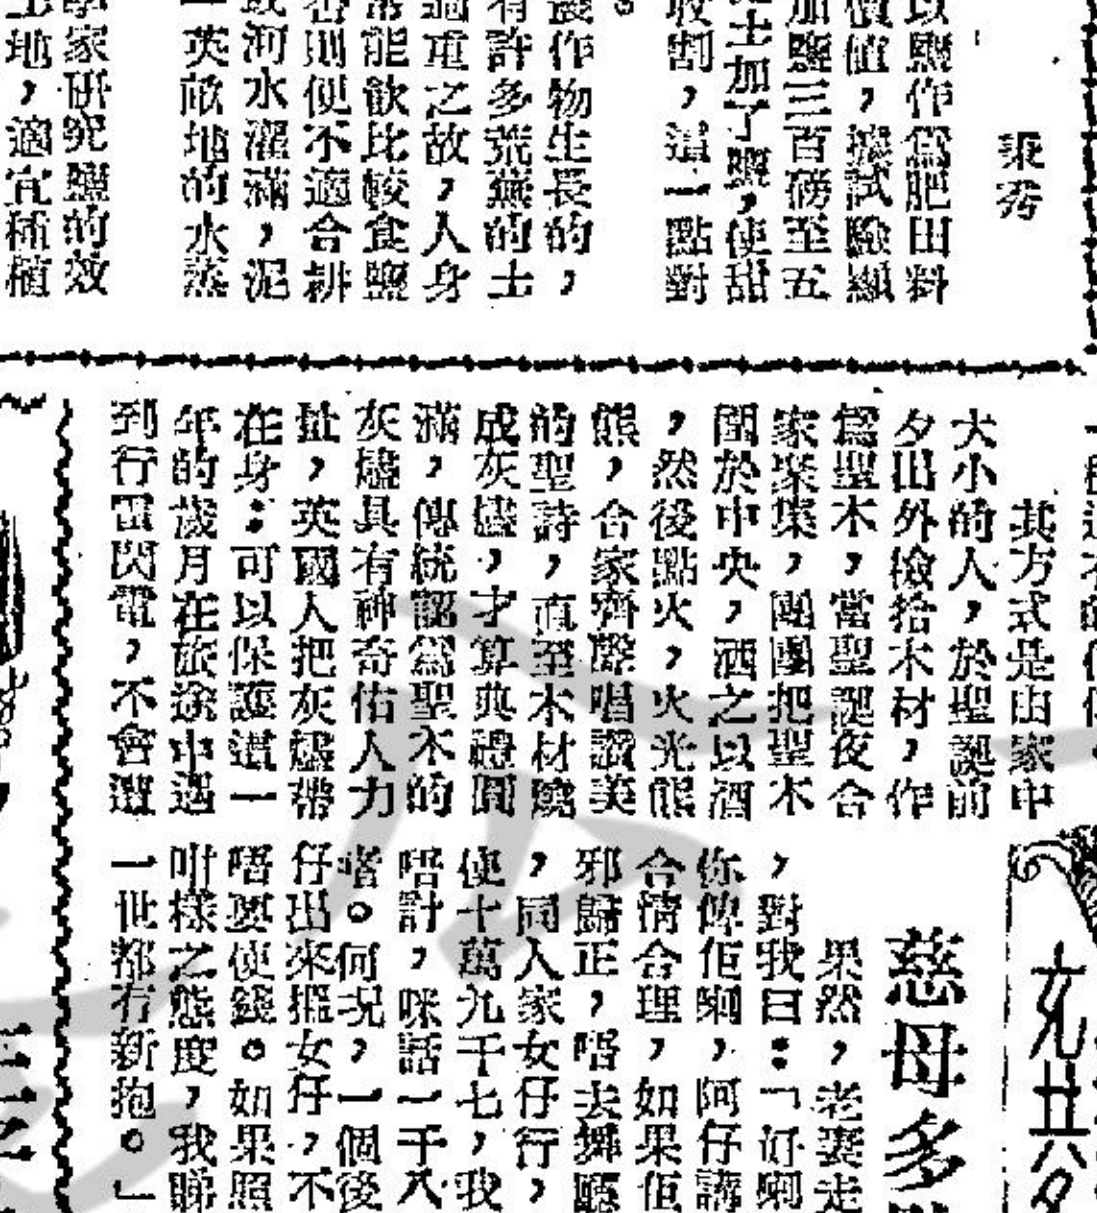 秉秀
以鹽作爲肥田料
價值，據試驗顯
加鹽三百磅至五
士加了鹽，使甜
收割，這一點對
護作物生長的，
有許多荒蕪的土
過重之故，人身
常能飲比較食鹽
否則便不適合耕
或河水灌滿，泥
一英畝地的水蒸
學家研究鹽的效
土地，適宜種植
其方式是由家中
大小的人，於聖誕前
夕出外檢拾木材，作
爲聖木，當聖誕夜合
家聚集，團團把聖木
圍於中央，洒之以酒
，然後點火，火光熊
熊，合家齊聲唱讚美
的聖詩，直至木材燒
成灰燼，才算典禮圓
滿，傳統認爲聖木的
灰燼具有神奇佑人力
扯，英國人把灰燼帶
在身：可以保護這一
年的歲月在旅途中遇
到行雷閃電，不會遭
慈母多
果然，老妻走
，對我曰：「好喇
你俾佢喇，阿仔講
合情合理，如果佢
邪歸正，唔去舞廳
，同人家女仔行，
使十萬九千七，我
唔計，咪話一千八
啱。何况，一個後
仔出來搵女仔，不
唔要使錢。如果照
咁樣之態度，我睇
一世都冇新抱。」